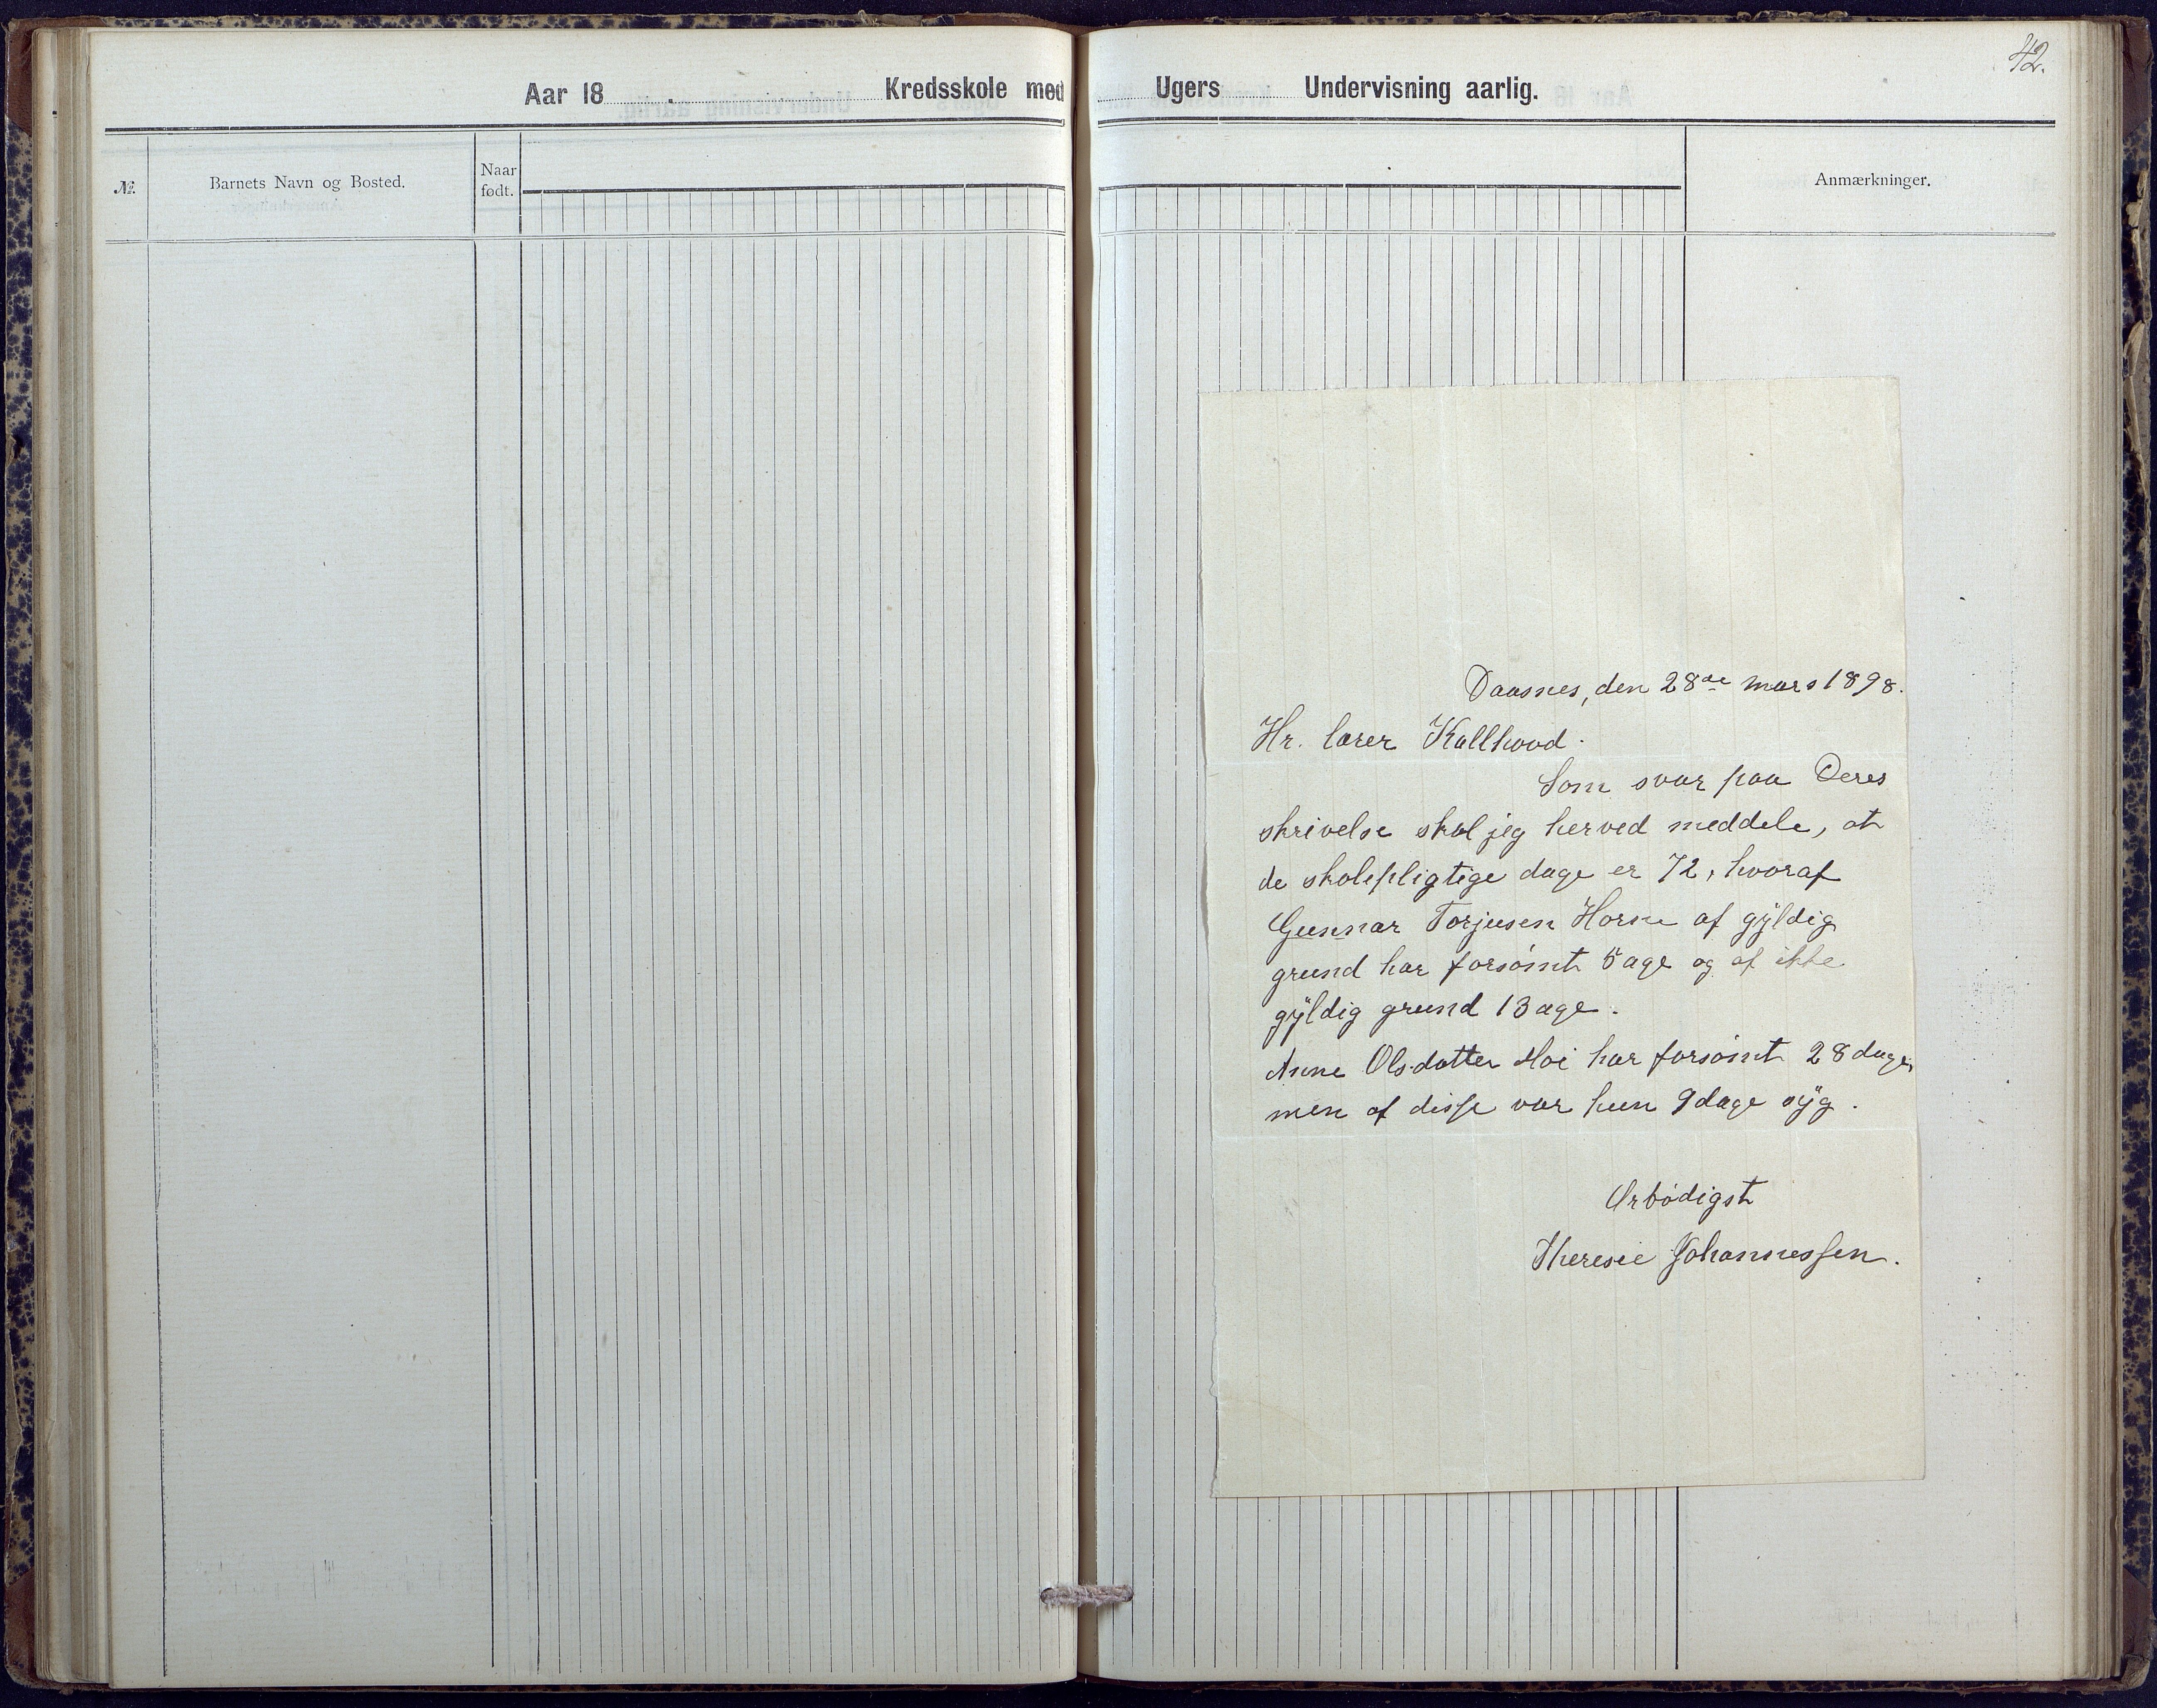 42.
Aar 18 Kredsskole med Ugers Undervisning aarlig.
№ Barnets Navn og Bosted. Naar født. Anmærkninger.
Daasnes, den 28de mars 1898.
Hr. lærer Kallhovd.
Som svar paa Deres
skrivelse skal jeg herved meddele, at
de skolepligtige dage er 72, hvoraf
Gunnar Torjusen Horne af gÿldig
grund har forsømt 5 age og af ikke
gÿldig grund 13 age.
Anne Olsdatter Moi har forsømt 28 dage,
men af disse var hun 9 dage sÿg.
Ærbødigst
Theresie Johannessen.